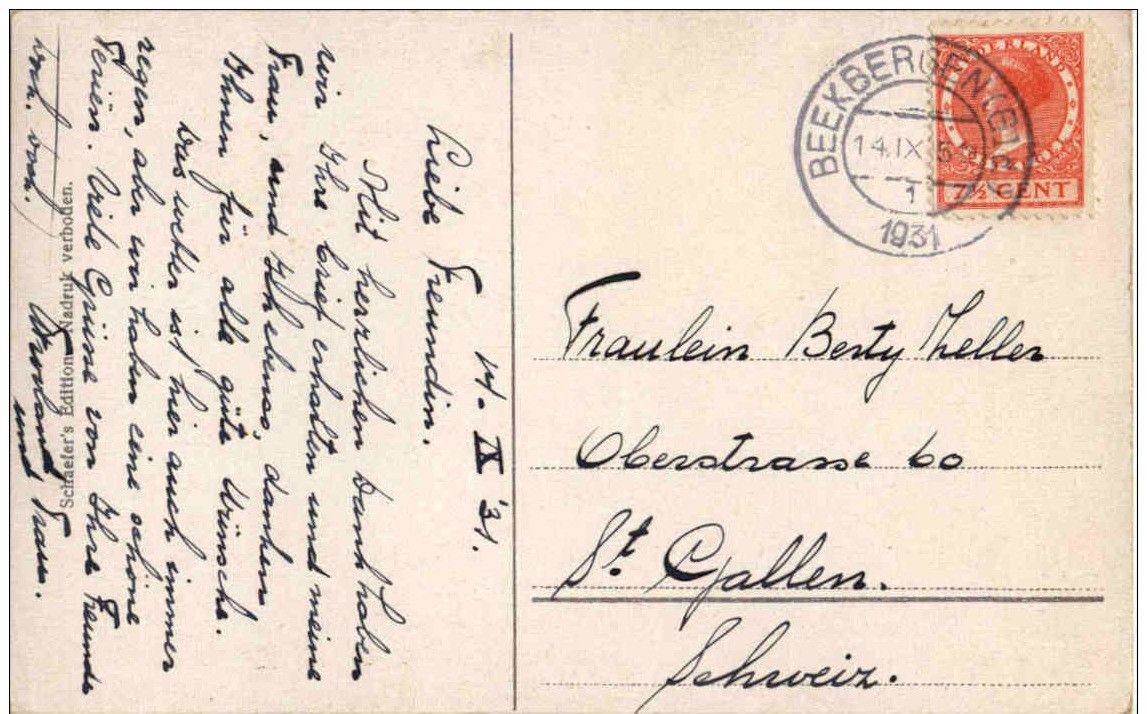 14. IX '31.
Liebe Freundin.
Mit herzlichen Dank haben
wir Ihre brief erhalten und meine
Frau, und Ihebens, danken
Ihnen für alle güte Wünsche.
Das wetter ist hier auch immer
regen, aber wir haben eine schöne
Ferien. Viele Grüsse von Ihre Freunde
und Frau.
Schaefer's Edition. Nadruk verboden.
BEEKBERGEN (GLD
14.IX
1
1931
NEDERLAND
7½ CENT
Fraulein Berty Zeller
Oberstrasse 60
St. Gallen.
Schweiz.